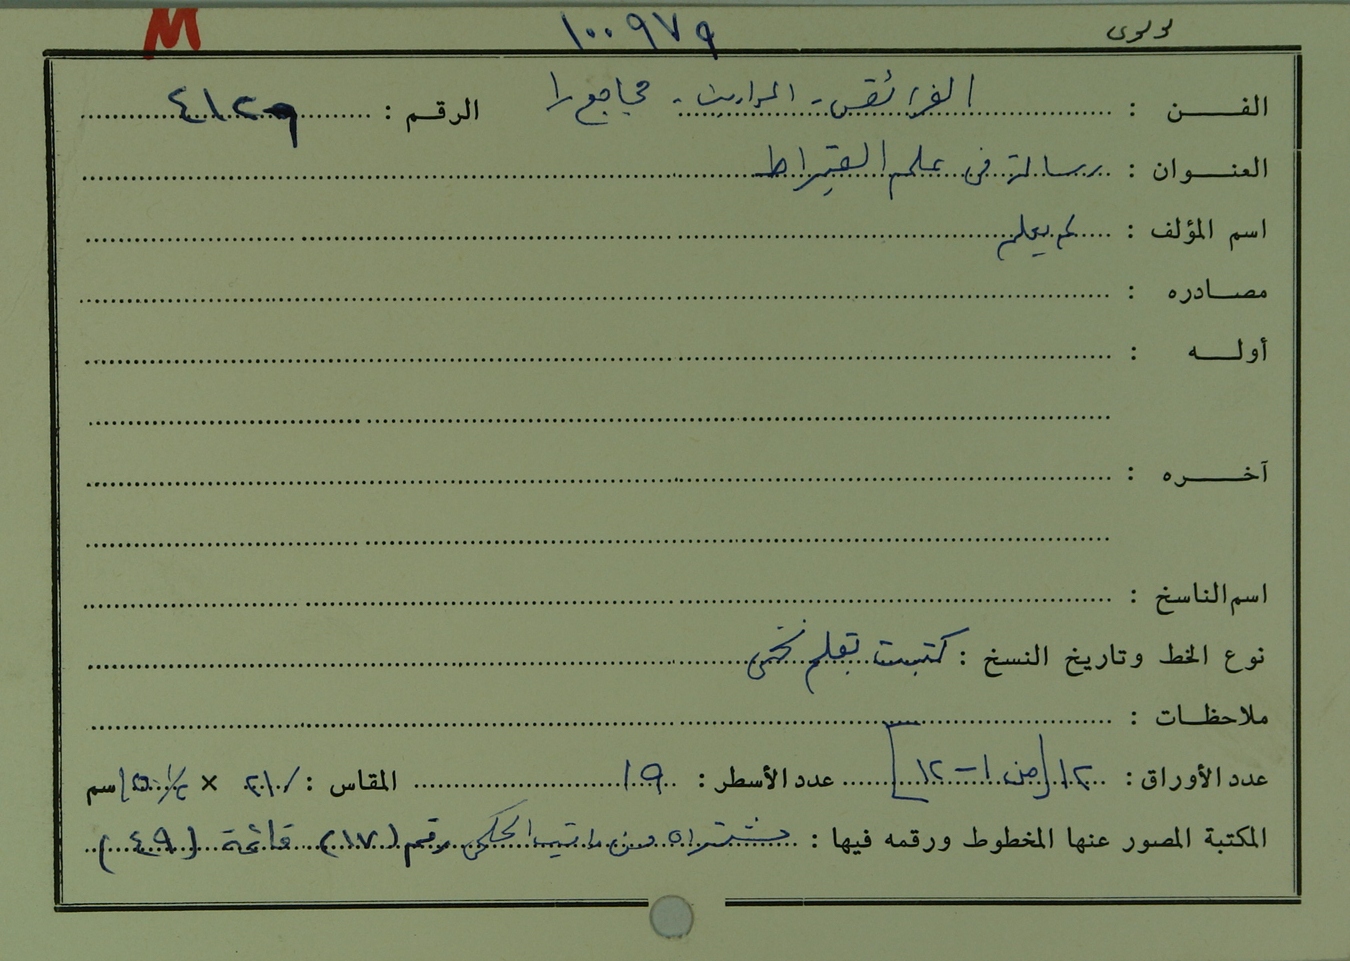 M ١٠٠٩٧٩
الفـــن : الفرائض - المواريث - مجاميع الرقم : ٤١٢٩
العنـــوان : رسالة في علم القيراط
اسم المؤلف : لم يعلم
مصـــادره :
أولـــه :
آخـــره :
اسم الناسخ :
نوع الخط وتاريخ النسخ : كتبت بقلم نسخي
ملاحظـات :
عدد الأوراق : ١٢ [من ١ - ١٢] عدد الأسطر : ١٩ المقاس : × سم
المكتبة المصور عنها المخطوط ورقمه فيها : مشتراه من الحكمي رقم (١٧) قائمة (٤٩)